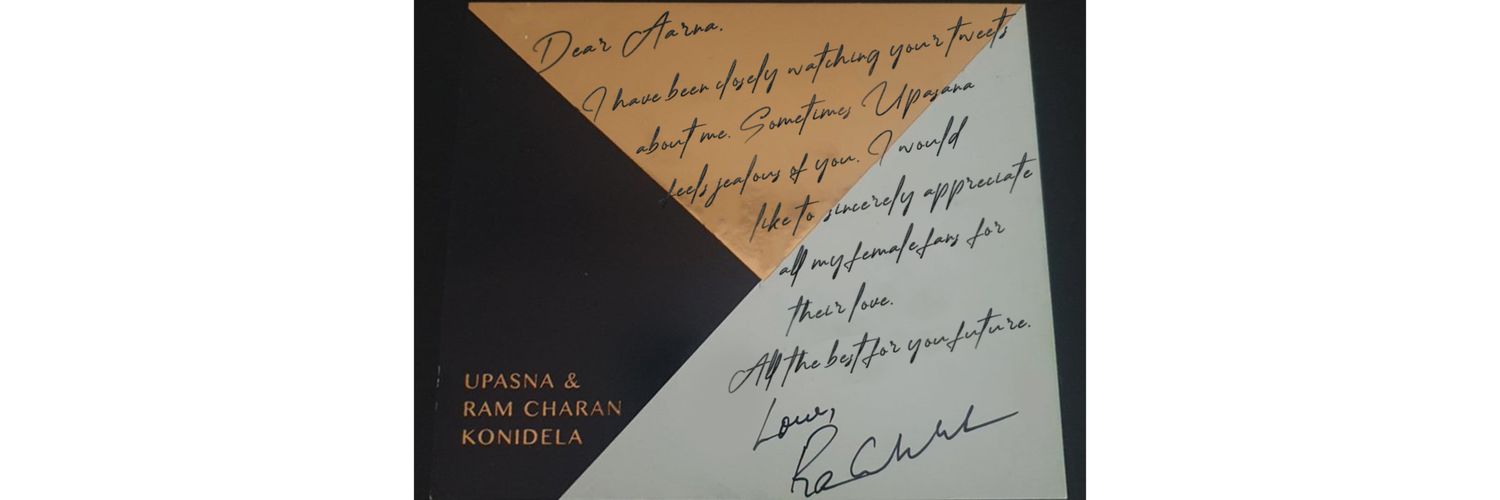 Dear Aarna.
I have been closely watching your tweets
about me. Sometimes Upasana
feels jealous of you. I would
like to sincerely appreciate
all my female fans for
their love.
All the best for you future.
Love,
UPASNA &
RAM CHARAN
KONIDELA